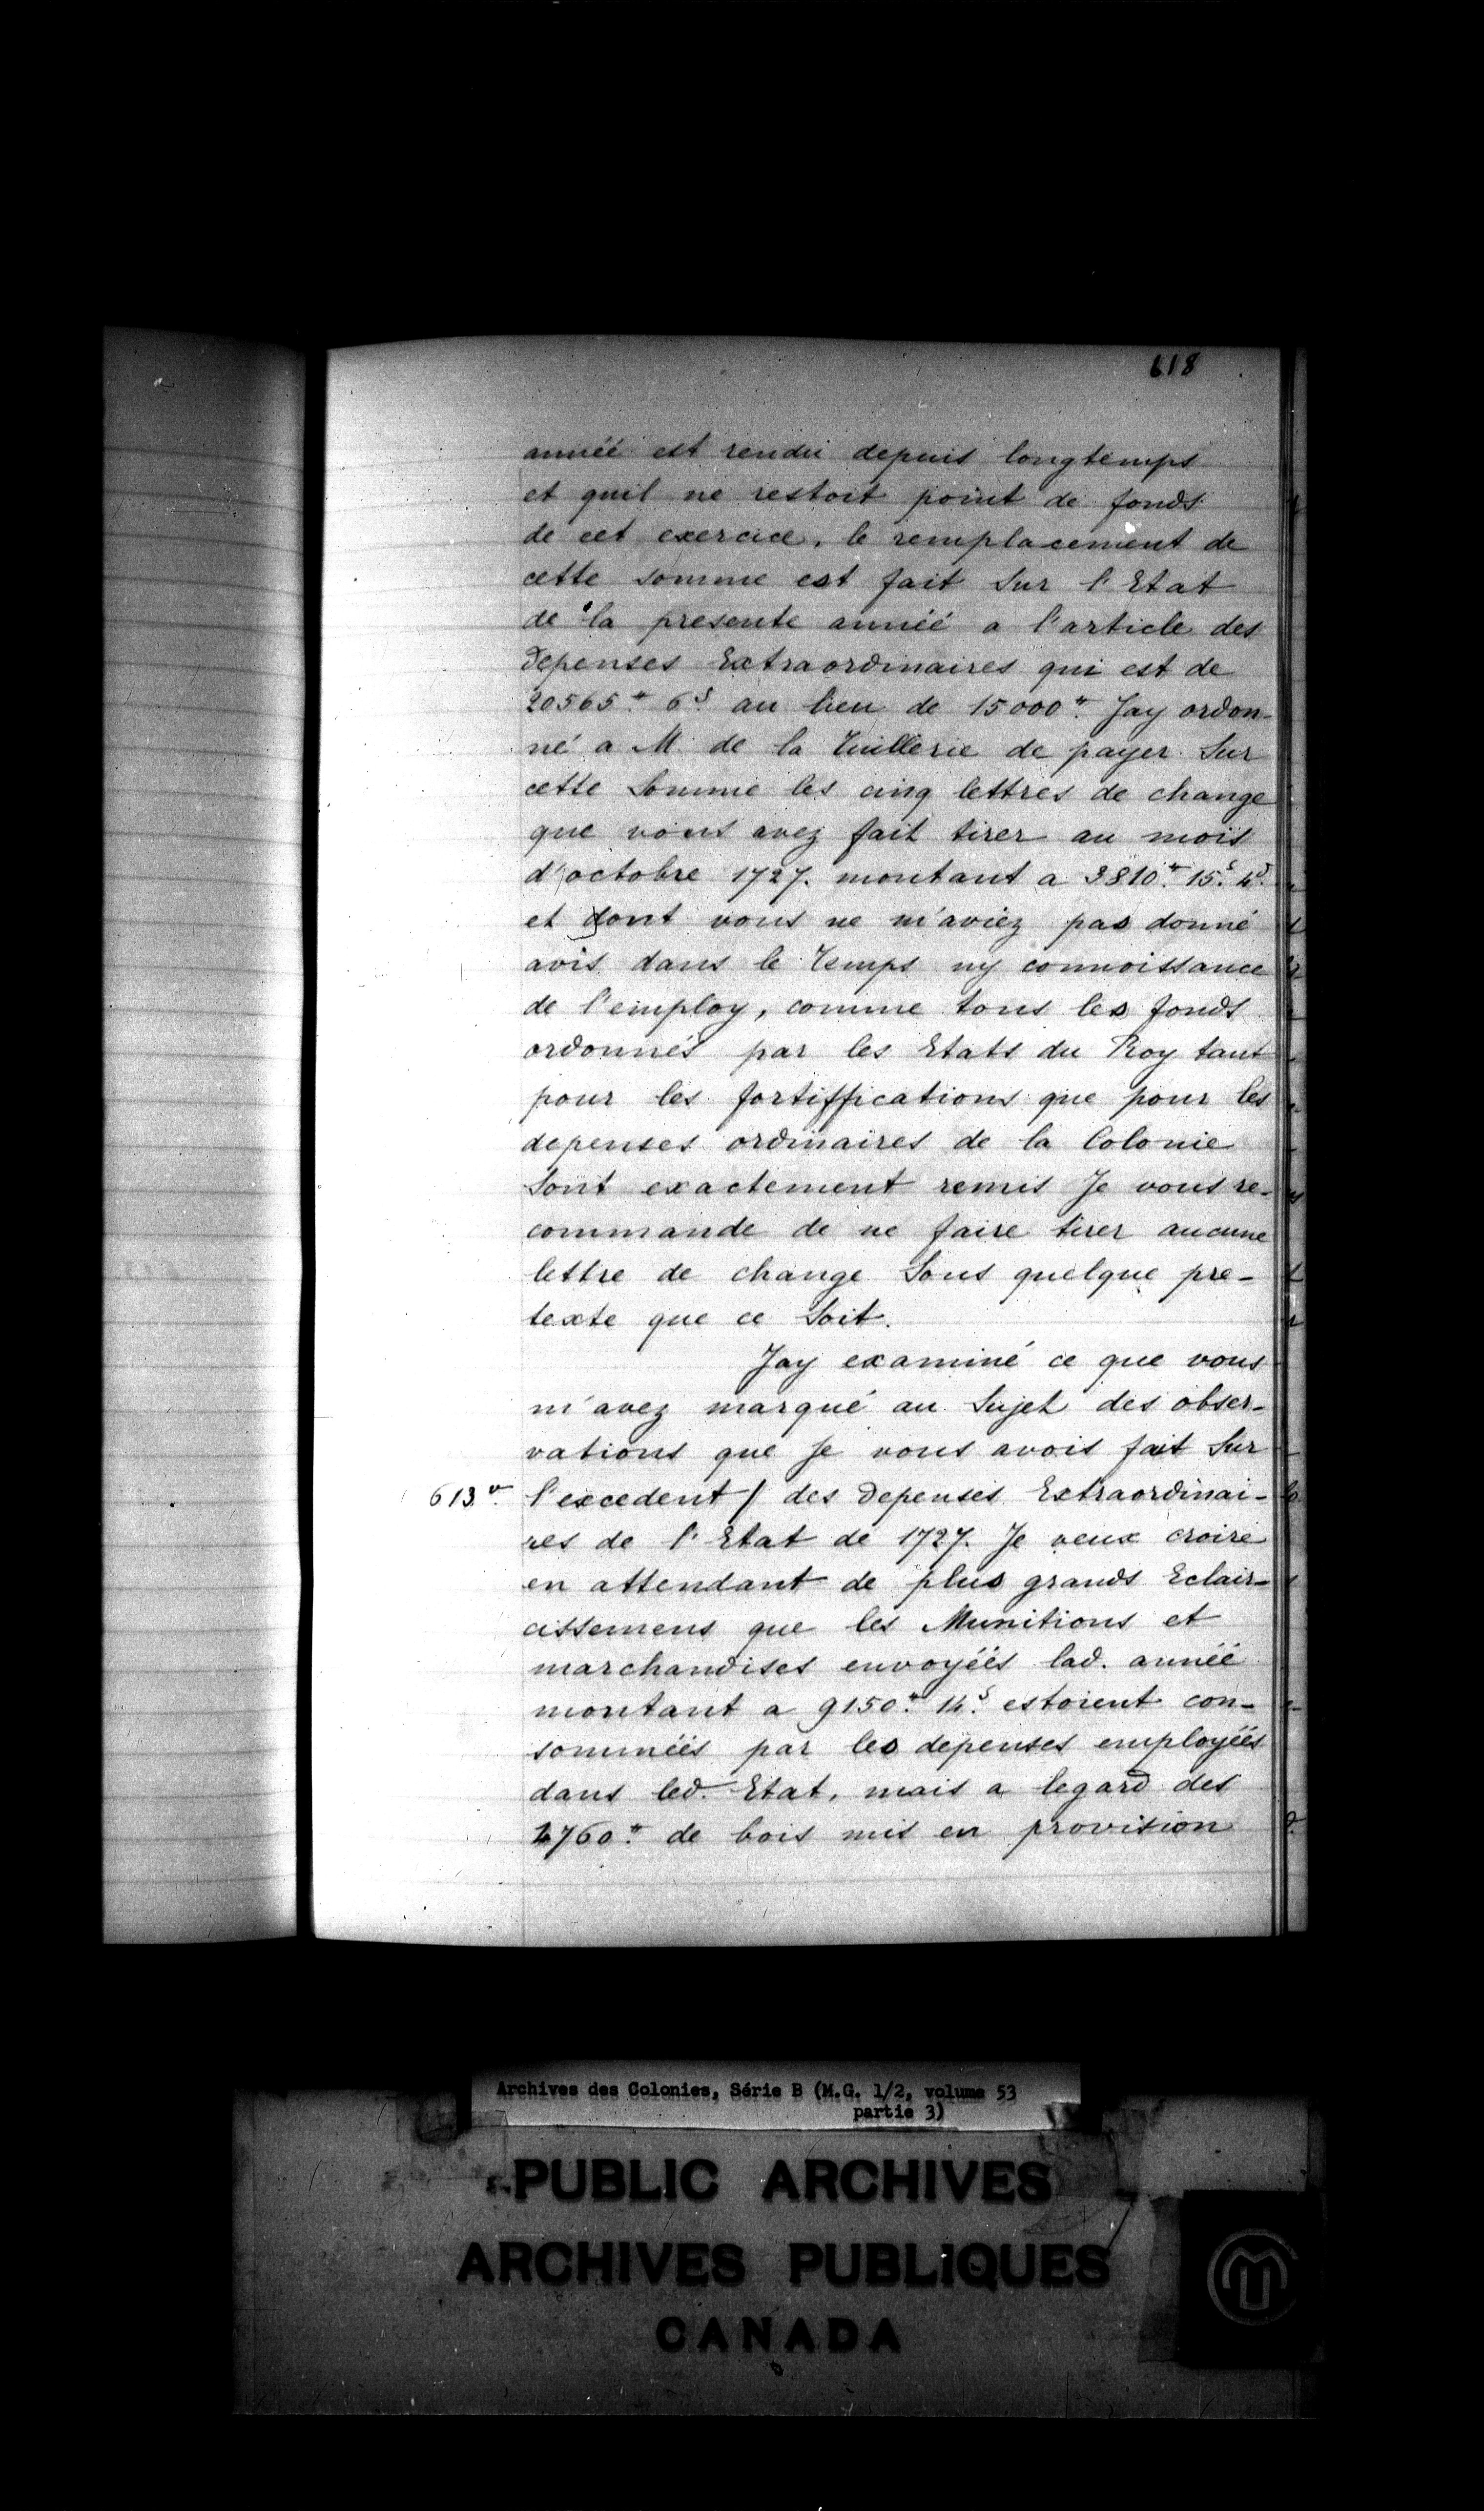 618
année est rendu depuis longtemps
et quil ne restoit point de fonds
de cet exercice, le remplacement de
cette somme est fait sur l'Etat
de la presente année a l'article des
depenses Extraordinaires qui est de
20565.# 6.s au lieu de 15000.# Jay ordon-
né a M. de la Tuillerie de payer sur
cette somme les cinq lettres de change
que vous avez fait tirer au mois
d'octobre 1727. montant a 3810.# 15.s 4.d
et dont vous ne m'aviez pas donné
avis dans le temps ny connoissance
de l'employ, comme tous les fonds
ordonnés par les Etats du Roy tant
pour les fortiffications que pour les
depenses ordinaires de la Colonie
sont exactement remis Je vous re-
commande de ne faire tirer aucune
lettre de change sous quelque pre-
texte que ce soit.
Jay examiné ce que vous
m'avez marqué au sujet des obser-
vations que Je vous avois fait sur
613 v. l'excedent / des depenses Extraordinai-
res de l'Etat de 1727. Je veux croire
en attendant de plus grands Eclair-
cissemens que les Munitions et
marchandises envoyéés lad. année
montant a 9150.# 14.s estoient con-
somméés par les depenses employéés
dans led. Etat, mais a legard des
4760.# de bois mis en provision
Archives des Colonies, Série B (M.G. 1/2, volume 53
partie 3)
PUBLIC ARCHIVES
ARCHIVES PUBLIQUES
CANADA